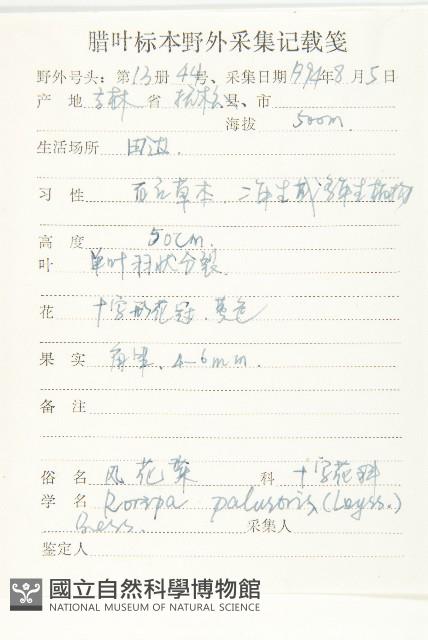 腊叶标本野外采集记载笺
野外号头：第13册44号、采集日期1994年8月5日
产 地 吉林 省 县、市
海拔 500m.
生活场所 田边.
习 性 直立草本, 二年生或多年生植物
高 度 50cm.
叶 单叶羽状分裂.
花 十字形花冠, 黄色
果 实 角果、4-6mm.
备 注
俗 名 风花菜 科 十字花科
学 名 Rorippa palustris (Leyss.)
Bess. 采集人
鉴定人
國立自然科學博物館
NATIONAL MUSEUM OF NATURAL SCIENCE